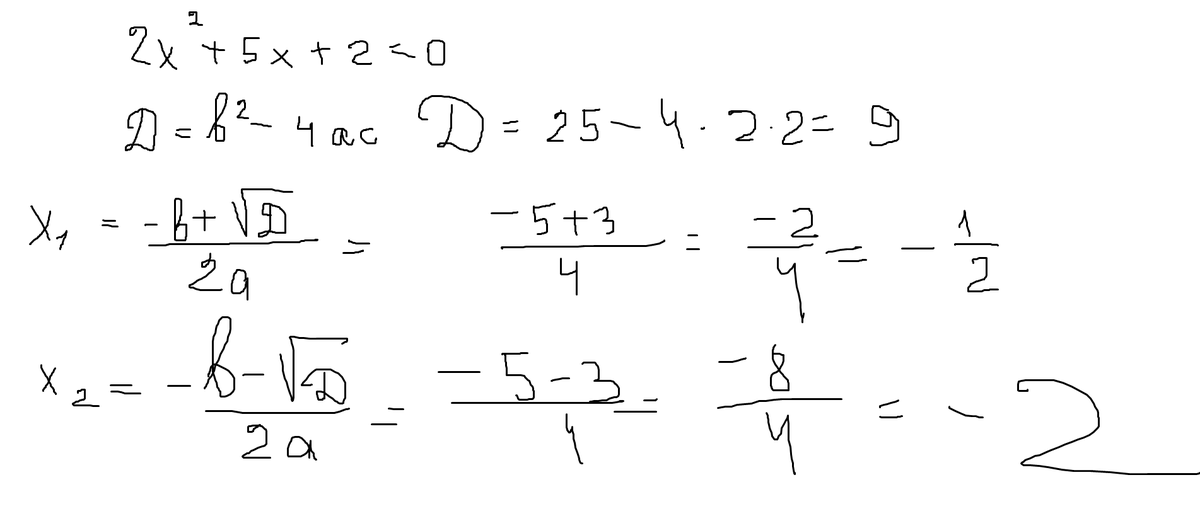 2x² + 5x + 2 = 0
D = b² - 4ac D = 25 - 4 · 2 · 2 = 9
x₁ = (-b + √D)/(2a) = (-5+3)/4 = (-2)/4 = -1/2
x₂ = (-b - √D)/(2a) = (-5-3)/4 = (-8)/4 = -2